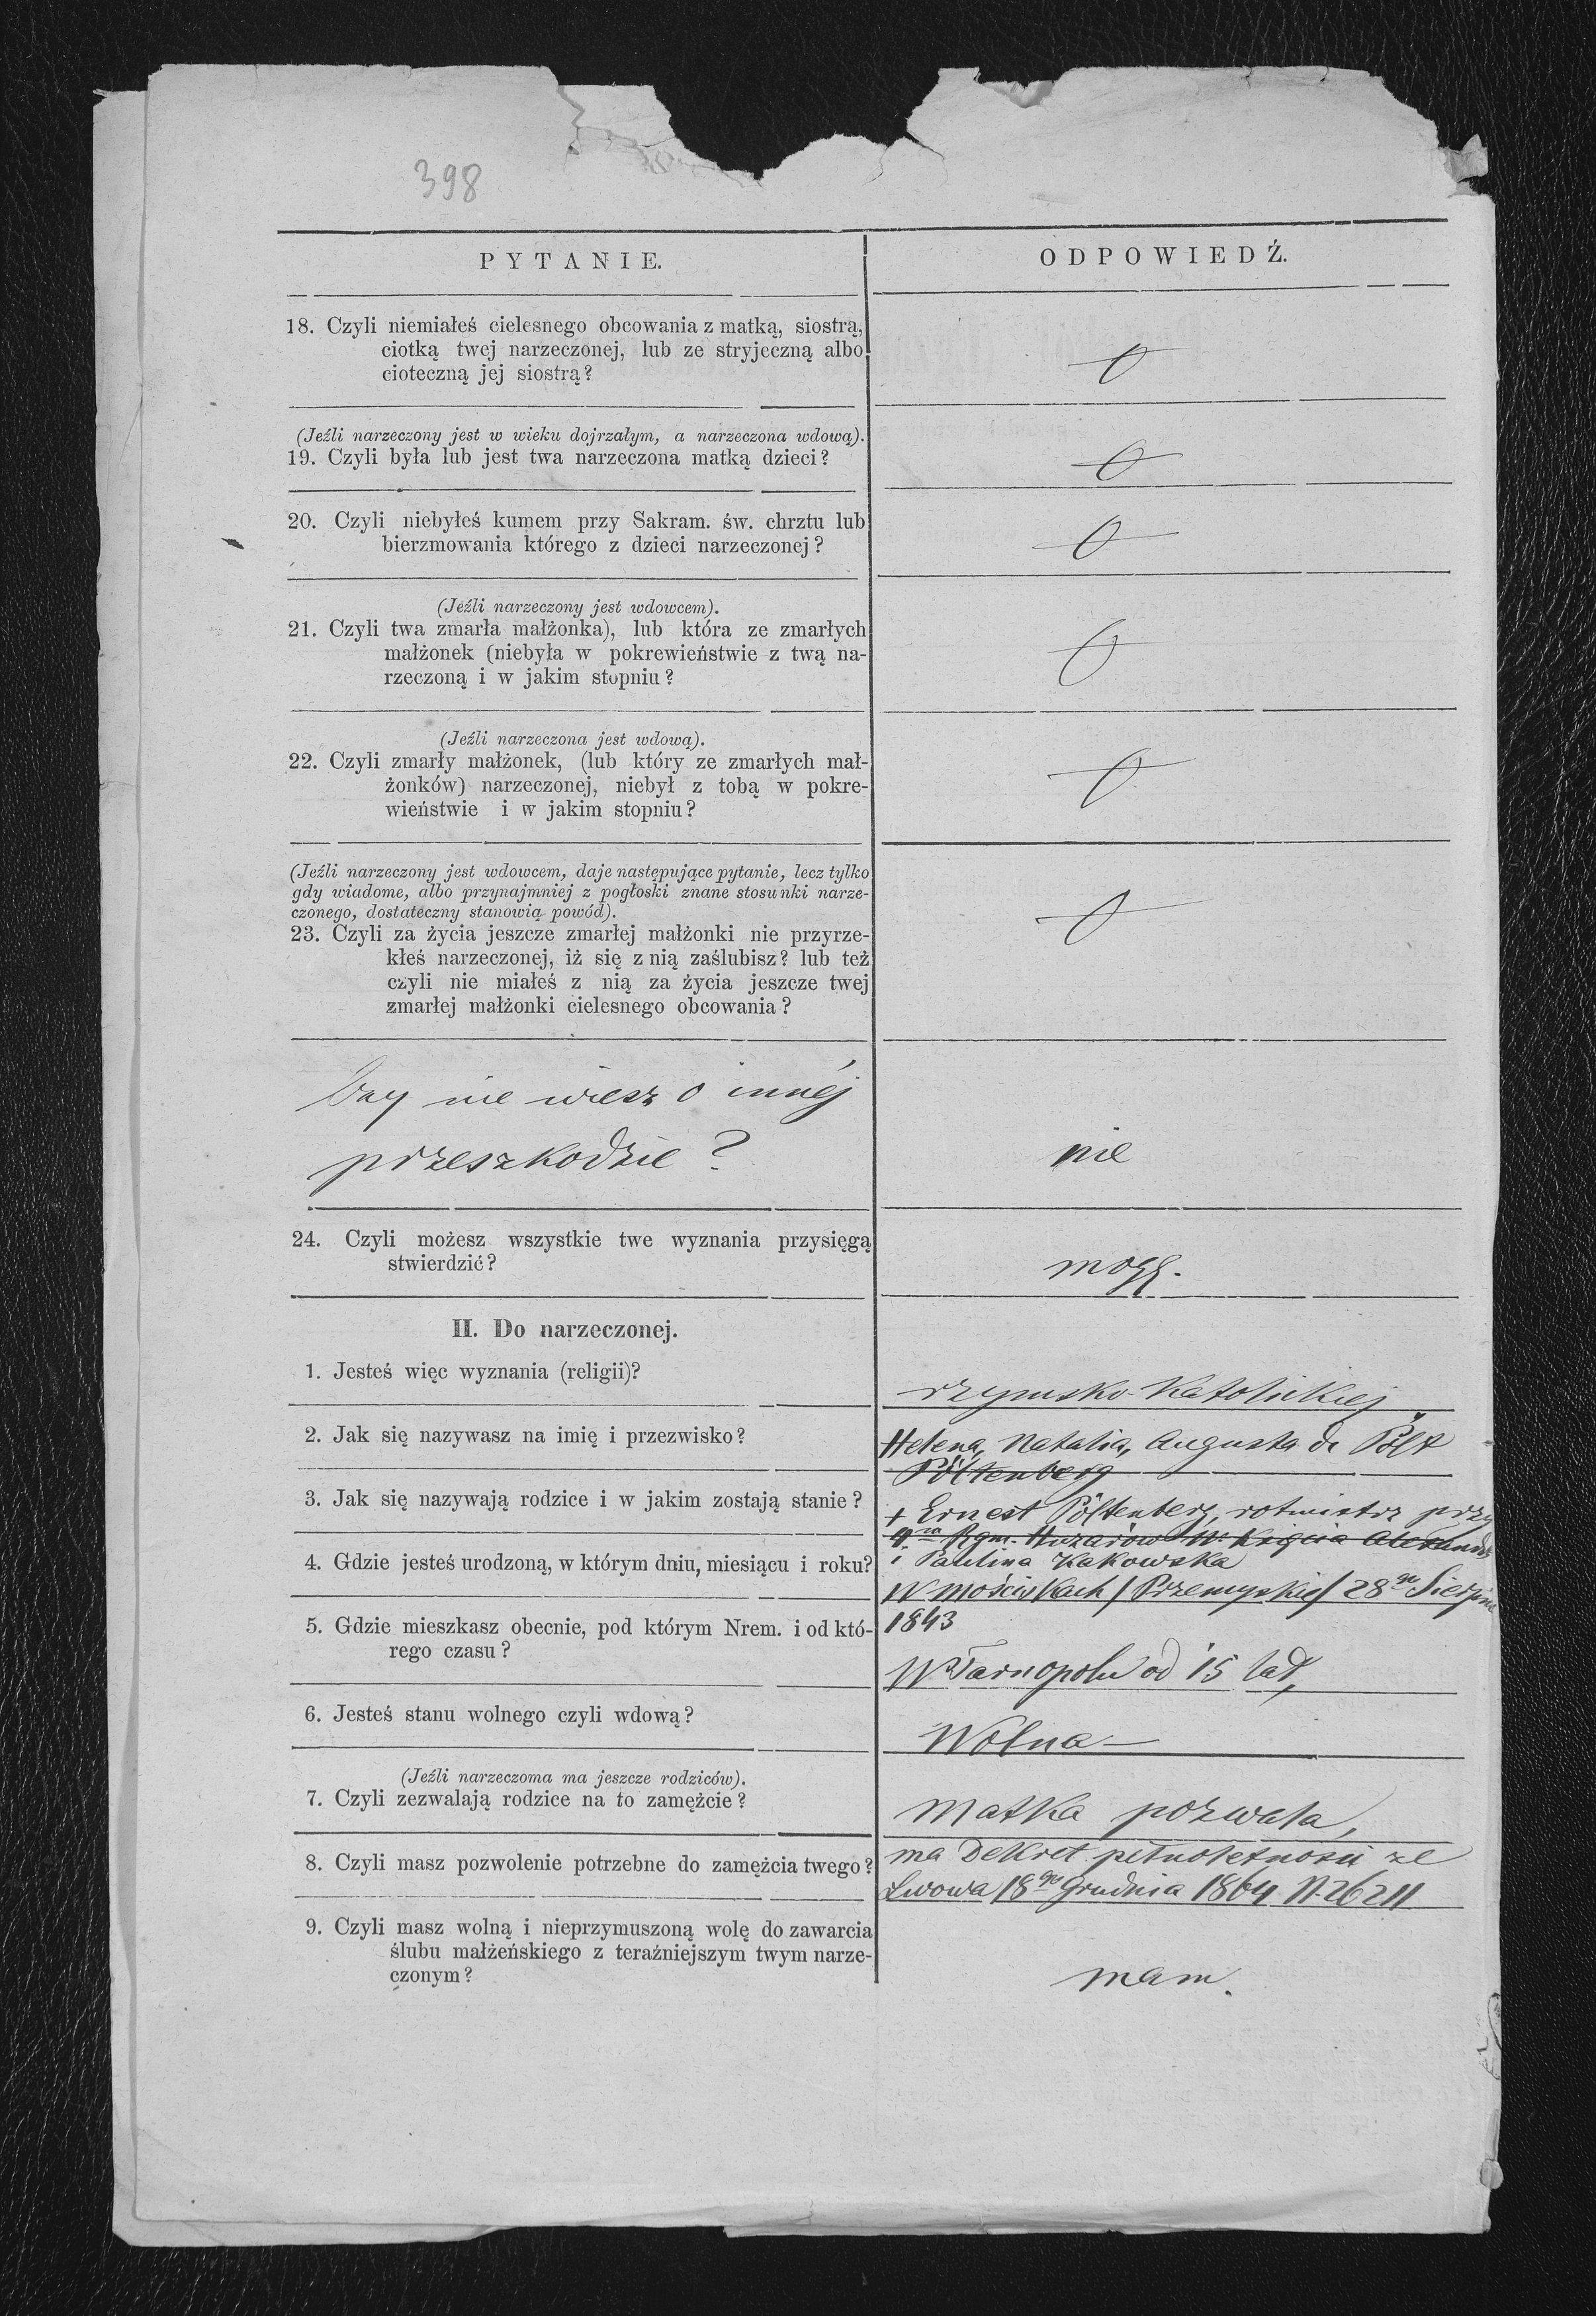 398
PYTANIE.
ODPOWIEDŹ.
18. Czyli niemiałeś cielesnego obcowania z matką, siostrą,
ciotką twej narzeczonej, lub ze stryjeczną albo
cioteczną jej siostrą?
(Jeźli narzeczony jest w wieku dojrzałym, a narzeczona wdową).
19. Czyli była lub jest twa narzeczona matką dzieci?
20. Czyli niebyłeś kumem przy Sakram. św. chrztu lub
bierzmowania którego z dzieci narzeczonej?
(Jeźli narzeczony jest wdowcem).
21. Czyli twa zmarła małżonka), lub która ze zmarłych
małżonek (niebyła w pokrewieństwie z twą na-
rzeczoną i w jakim stopniu?
(Jeźli narzeczona jest wdową).
22. Czyli zmarły małżonek, (lub który ze zmarłych mał-
żonków) narzeczonej, niebył z tobą w pokre-
wieństwie i w jakim stopniu?
(Jeźli narzeczony jest wdowcem, daje następujące pytanie, lecz tylko
gdy wiadome, albo przynajmniej z pogłoski znane stosunki narze-
czonego, dostateczny stanowią powód).
23. Czyli za życia jeszcze zmarłej małżonki nie przyrze-
kłeś narzeczonej, iż się z nią zaślubisz? lub też
czyli nie miałeś z nią za życia jeszcze twej
zmarłej małżonki cielesnego obcowania?
Czy nie wiesz o innéj
przeszkodzie?
nie
24. Czyli możesz wszystkie twe wyznania przysięgą
stwierdzić?
mogę.
II. Do narzeczonej.
1. Jesteś więc wyznania (religii)?
rzymsko-katolickiej
2. Jak się nazywasz na imię i przezwisko?
Helena, Natalia, Augusta de Pölt
Pöltenberg
3. Jak się nazywają rodzice i w jakim zostają stanie?
+ Ernest Pöltenberg, rotmistrz przy
4m Rgm. Huzarów W. Księcia Alexandra
i Paulina Kakowska
4. Gdzie jesteś urodzoną, w którym dniu, miesiącu i roku?
W Mościskach / Przemyskie / 28go Sierpnia
1843
5. Gdzie mieszkasz obecnie, pod którym Nrem. i od któ-
rego czasu?
W Tarnopolu od 15 lat,
6. Jesteś stanu wolnego czyli wdową?
Wolna —
(Jeźli narzeczoma ma jeszcze rodziców).
7. Czyli zezwalają rodzice na to zamężcie?
Matka pozwala,
8. Czyli masz pozwolenie potrzebne do zamężcia twego?
ma Dekret pełnoletnosci ze
Lwowa 18go Grudnia 1864 N. 26211
9. Czyli masz wolną i nieprzymuszoną wolę do zawarcia
ślubu małżeńskiego z teraźniejszym twym narze-
czonym?
mam.